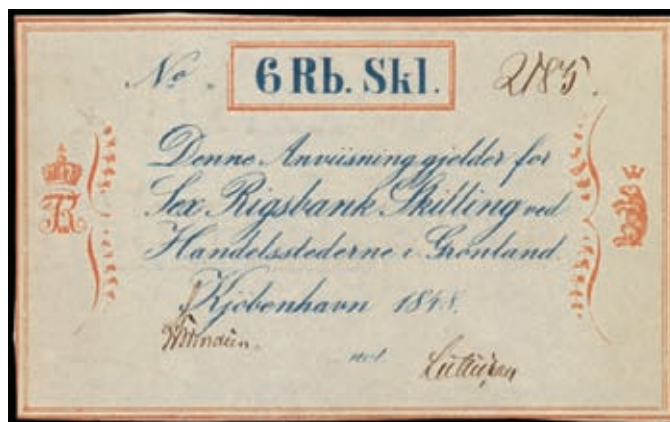 No. 6 Rb. Skl. 2185.
Denne Anviisning gjelder for
Sex Rigsbank Skilling ved
Handelsstederne i Grønland.
Kjöbenhavn 1848.
not.